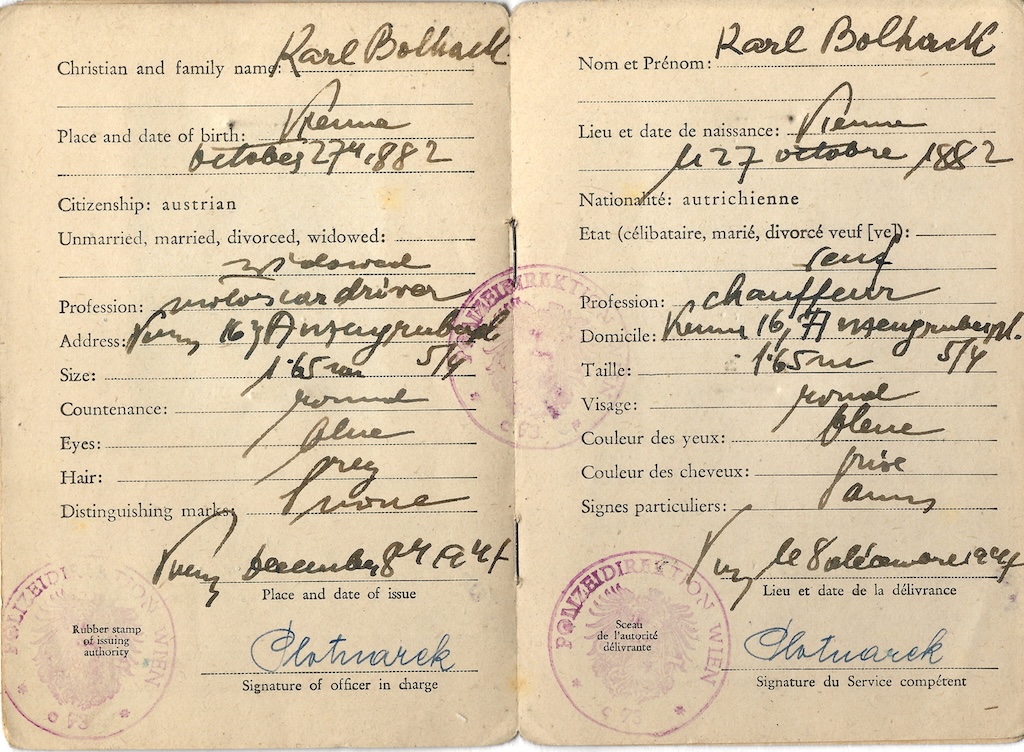 Christian and family name: Karl Bolhack
Place and date of birth: Vienna
October 27th 1882
Citizenship: austrian
Unmarried, married, divorced, widowed:
widowed
Profession: motorcardriver
Address: 16, Anzengruberpl.
Size: 1·65 m 5/4
Countenance: round
Eyes: blue
Hair: grey
Distinguishing marks: none
december 8th 1947
Place and date of issue
Rubber stamp
of issuing
authority
Signature of officer in charge
POLIZEIDIREKTION WIEN
* C 73 *
POLIZEIDIREKTION
C 73
Nom et Prénom: Karl Bolhack
Lieu et date de naissance: Vienne
le 27 octobre 1882
Nationalité: autrichienne
Etat (célibataire, marié, divorcé veuf [ve]):
veuf
Profession: chauffeur
Domicile: 16, Anzengruberpl.
Taille: 1·65 m 5/4
Visage: rond
Couleur des yeux: bleue
Couleur des cheveux: grise
Signes particuliers:
le 8 décembre 1947
Lieu et date de la délivrance
Sceau
de l'autorité
délivrante
Signature du Service compétent
POLIZEIDIREKTION WIEN
* C 73 *